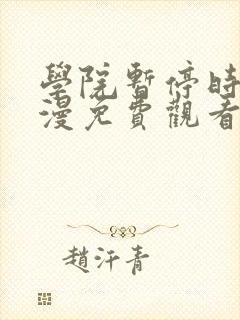 學院暫停時
漫免費觀看
趙汗青